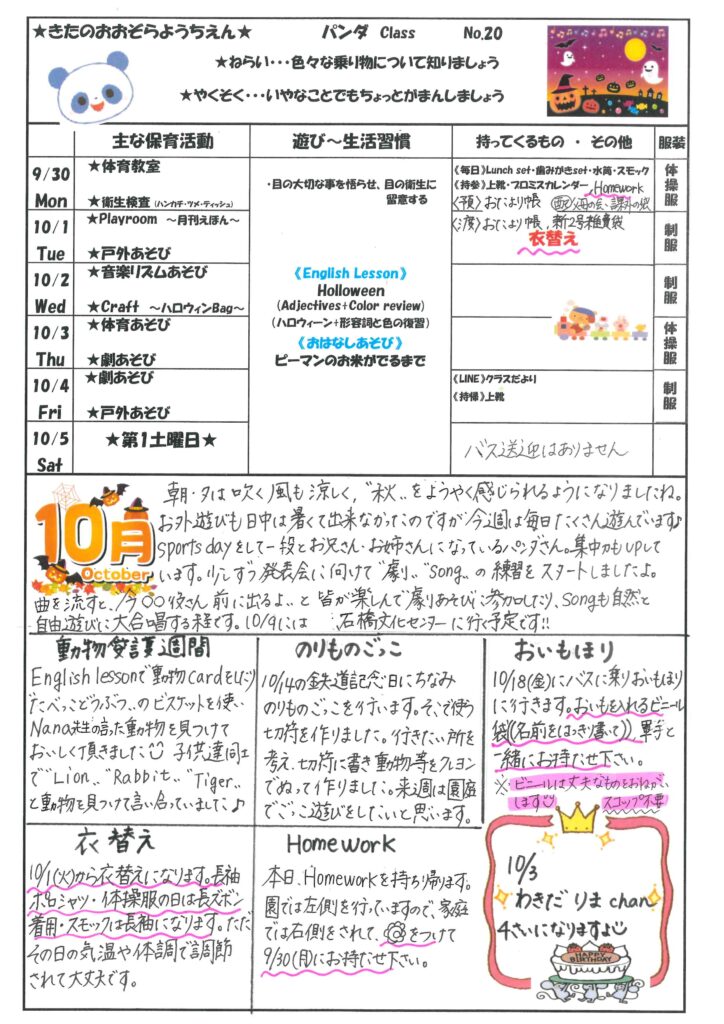 ★きたのおおぞらようちえん★ パンダ Class No.20
★ねらい・・・色々な乗り物について知りましょう
★やくそく・・・いやなことでもちょっとがまんしましょう
主な保育活動 遊び〜生活習慣 持ってくるもの ・ その他 服装
9/30 Mon
★体育教室
★衛生検査(ハンカチ・ツメ・ティッシュ)
・目の大切な事を悟らせ、目の衛生に
留意する
《毎日》Lunch set・歯みがきset・水筒・スモック
《持参》上靴・プロミスカレンダー, Homework
〈預〉おたより帳
体操服
10/1 Tue
★Playroom 〜月刊えほん〜
★戸外あそび
〈渡〉おたより帳, 新2号雑費袋
衣替え
制服
10/2 Wed
★音楽リズムあそび
★Craft 〜ハロウィンBag〜
《English Lesson》
Holloween
(Adjectives+Color review)
(ハロウィーン+形容詞と色の復習)
《おはなしあそび》
ピーマンのお米がでるまで
制服
10/3 Thu
★体育あそび
★劇あそび
体操服
10/4 Fri
★劇あそび
★戸外あそび
《LINE》クラスだより
《持帰》上靴
制服
10/5 Sat
★第1土曜日★
バス送迎はありません
10月
October
朝・夕は吹く風も涼しく, "秋"をようやく感じられるようになりましたね。
お外遊びも日中は暑くて出来なかったのですが今週は毎日たくさん遊んでいます♪
sports dayをして一段とお兄さん・お姉さんになっているパンダさん。集中力もUPして
います。少しずつ発表会に向けて"劇" "Song"の練習をスタートしましたよ。
曲を流すと、"今○○役さん前に出るよ"と皆が楽しんで劇あそびに参加したり、Songも自然と
自由遊びに大合唱する程です。10/9には 石橋文化センターに行く予定です!!
動物愛護週間
English lessonで動物cardをしたり
"たべっこどうぶつ"のビスケットを使い
Nana先生の言った動物を見つけて
おいしく頂きました 子供達同士
で"Lion" "Rabbit" "Tiger"
と動物を見つけて言い合っていました♪
のりものごっこ
10/14の鉄道記念日にちなみ
のりものごっこを行います。そこで使う
切符を作りました。行きたい所を
考え、切符に書き動物等をクレヨン
でぬって作りました。来週は園庭
でごっこ遊びをしたいと思います。
おいもほり
10/18(金)にバスに乗りおいもほり
に行きます。おいもを入れるビニール
袋((名前をはっきり書いて)) 軍手と
一緒にお持たせ下さい。
※ビニールは丈夫なものをおねがい
します スコップ不要
衣替え
10/1(火)から衣替えになります。長袖
ポロシャツ・体操服の日は長ズボン
着用・スモックは長袖になります。ただ
その日の気温や体調で調節
されて大丈夫です。
Homework
本日、Homeworkを持ち帰ります。
園では左側を行っていますので、家庭
では右側をされて、をつけて
9/30(月)にお持たせ下さい。
10/3
わきだ りま chan
4さいになりますよ
HAPPY
BIRTHDAY